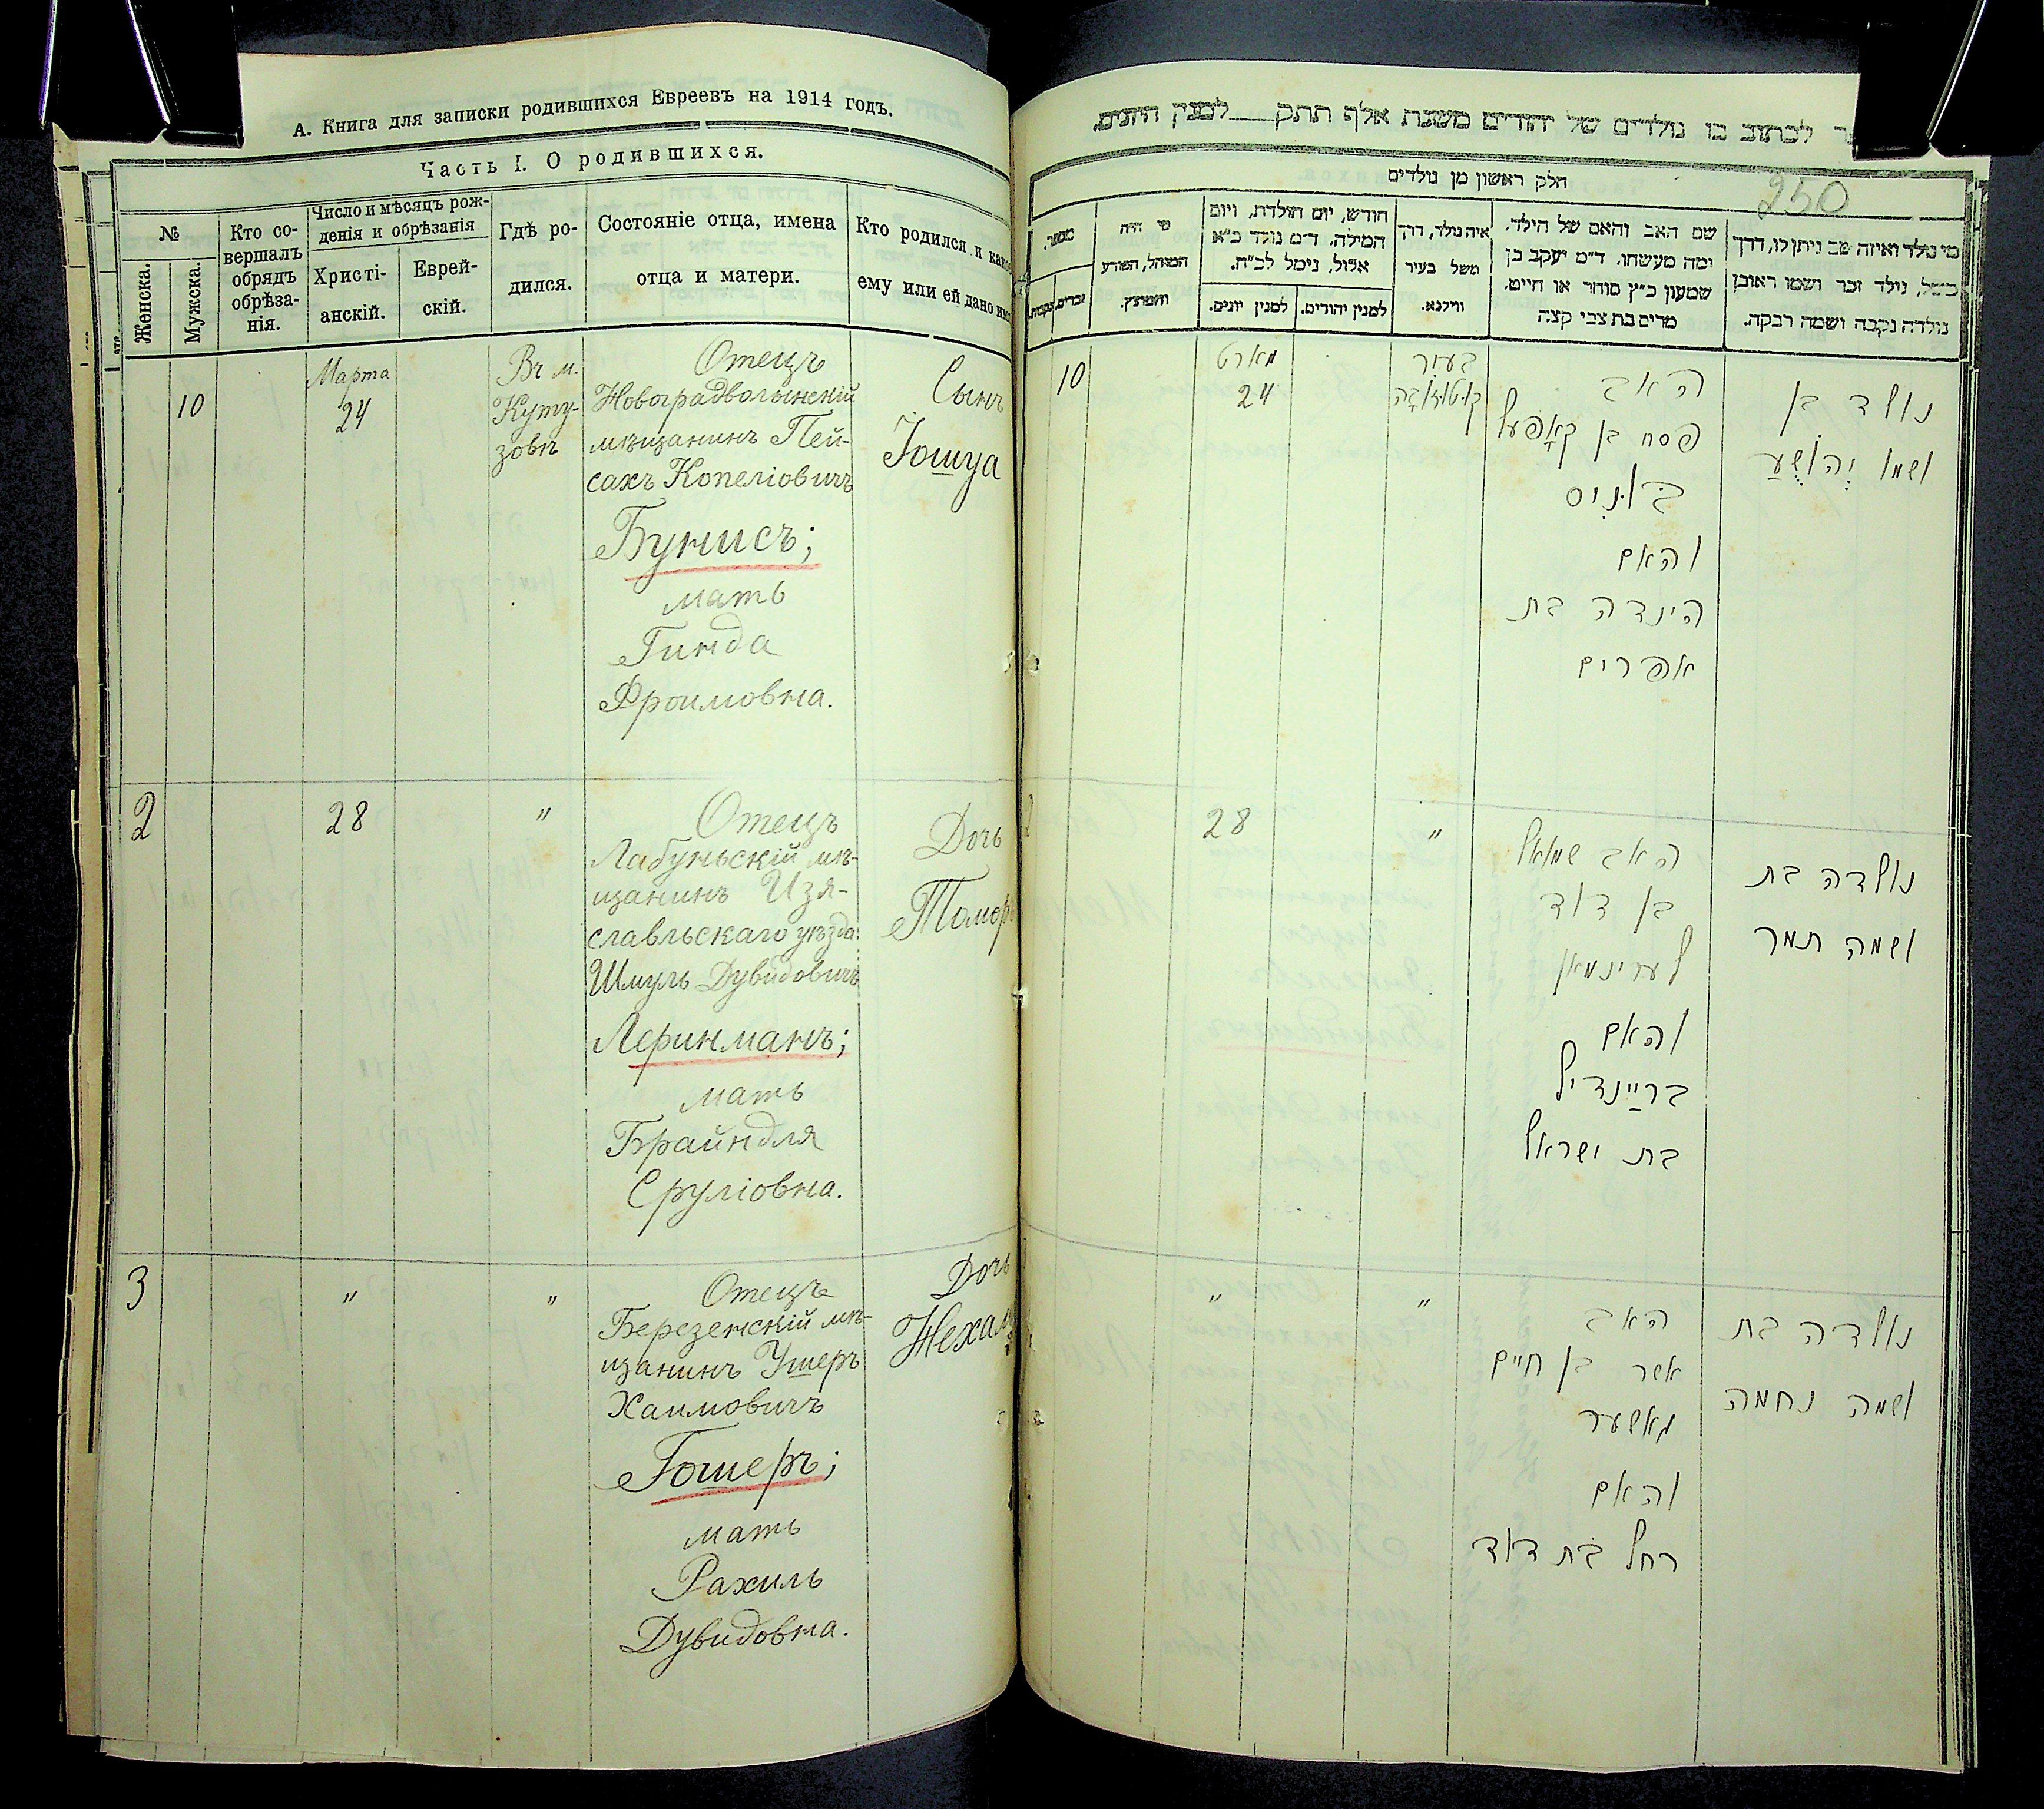 А. Книга для записки родившихся Евреевъ на 1914 годъ.
Часть I. О родившихся.
№
Женска.
Мужска.
Кто со-
вершалъ
обрядъ
обрѣза-
нія.
Число и мѣсяцъ рож-
денія и обрѣзанія
Христі-
анскій.
Еврей-
скій.
Гдѣ ро-
дился.
Состояніе отца, имена
отца и матери.
Кто родился и како
ему или ей дано им
10
Марта
24
Въ м.
Куту-
зовѣ
Отецъ
Новоградволынскій
мѣщанинъ Пей-
сахъ Копеліовичъ
Бунисъ;
мать
Гинда
Фроимовна.
Сынъ
Іошуа
2
28
"
Отецъ
Лабуньскій мѣ-
щанинъ Изя-
славльскаго уѣзда
Шмуль Дувидовичъ
Леринманъ;
мать
Брайндля
Сруліовна.
Дочь
Томер
3
"
"
Отецъ
Березенскій мѣ-
щанинъ Ушеръ
Хаимовичъ
Гошеръ;
мать
Рахиль
Дувидовна.
Дочь
Нехам
לכתוב בו נולדים של יהודים משנת אלף תתק למנין היונים.
250
חלק ראשון מן נולדים
מספר.
זכרים.
נקבות.
מי היה
המוהל, הפורע
והמוצץ.
חודש, יום הולדת, ויום
המילה. ד״מ נולד כ״א
אלול, נימל לכ״ח.
למנין יונים.
למנין יהודים.
איה נולד, דרך
משל בעיר
ווילנא.
שם האב והאם של הילד.
ומה מעשהו. ד״מ יעקב בן
שמעון כ״ץ סוחר או חייט.
מרים בת צבי קצה
מי נולד ואיזה שם ניתן לו, דרך
משל, נולד זכר ושמו ראובן
נולדה נקבה ושמה רבקה.
10
מארט
24
בעיר
האב
פסח בן קאָפּעל
בוניס
והאם
הינדה בת
אפרים
נולד בן
ושמו יְהוֹשֻׁעַ
2
28
"
האב שמואל
בן דוד
לערינמאן
והאם
בריינדיל
בת ישראל
נולדה בת
ושמה תמר
"
"
האב
אשר בן חיים
גאשער
והאם
רחל בת דוד
נולדה בת
ושמה נחמה